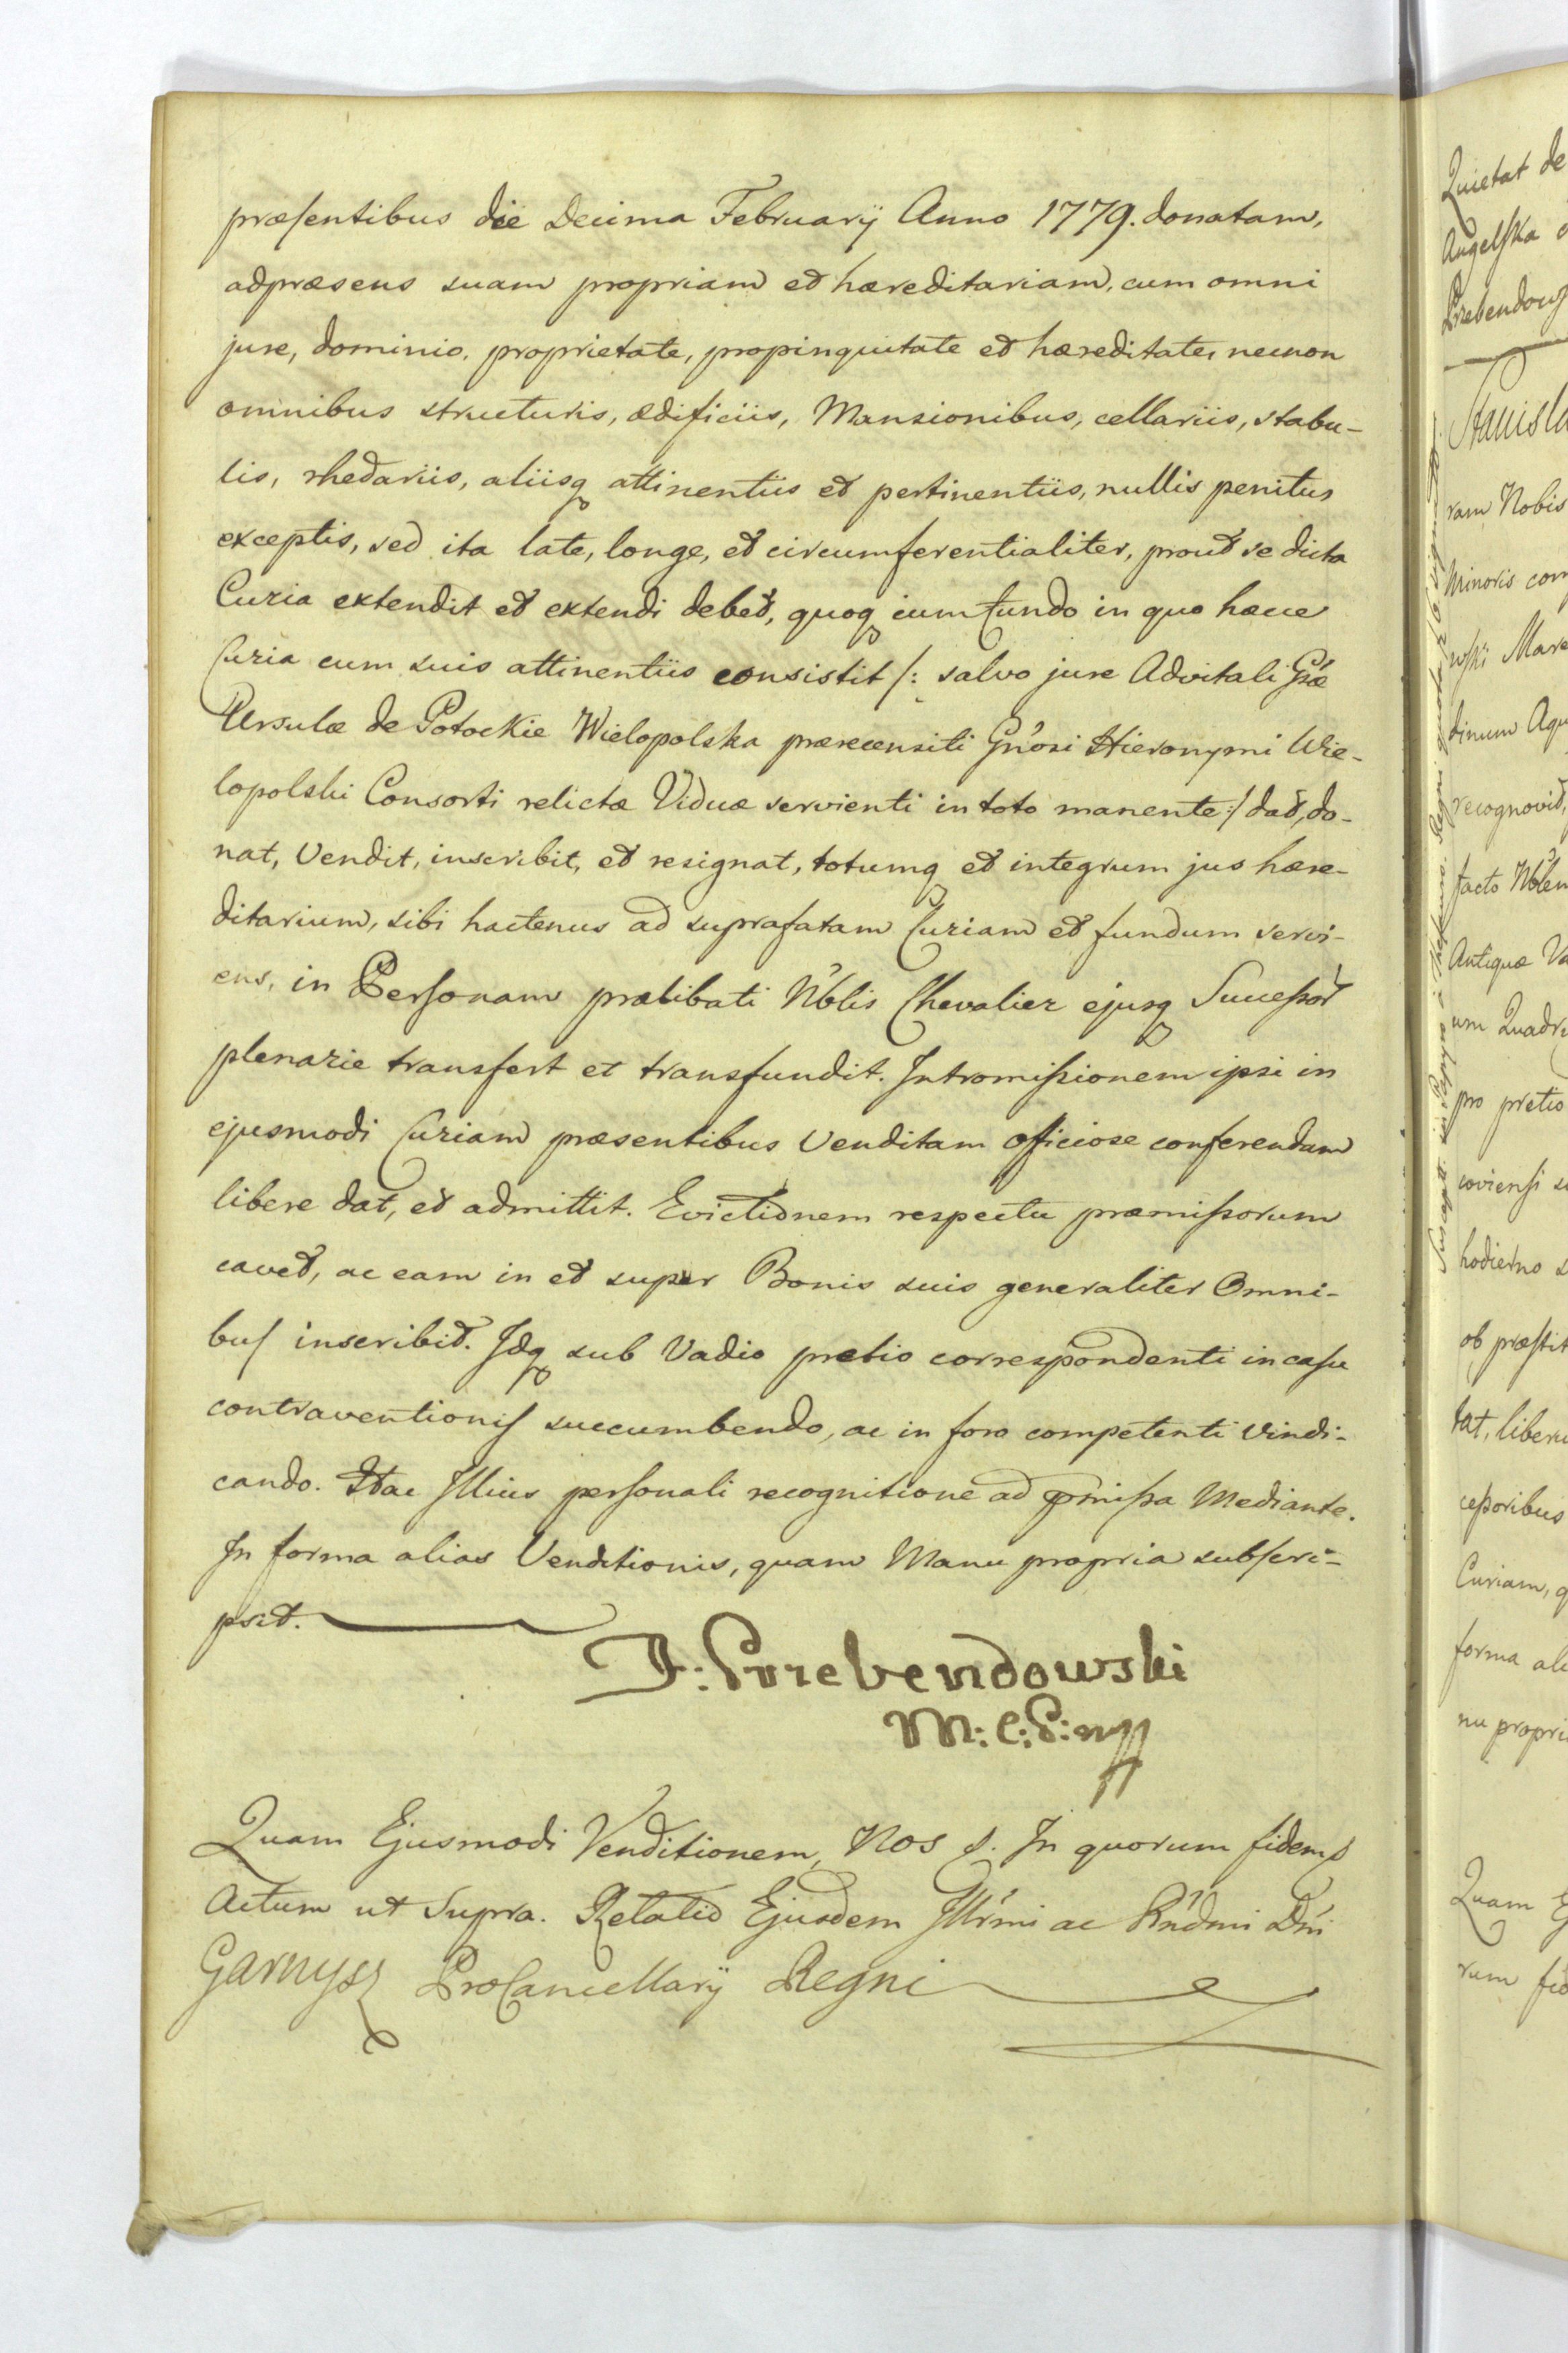 præsentibus die Decima Februarij Anno 1779. donatam,
adpræsens suam propriam et hæreditariam, cum omni
jure, dominio, proprietate, propinquitate et hæreditate, necnon
omnibus structuris, ædificiis, Mansionibus, cellariis, stabu-
lis, rhedariis, aliisq attinentiis et pertinentiis, nullis penitus
exceptis, sed ita late, longe, et circumferentialiter, prout se dicta
Curia extendit et extendi debet, quoq cum fundo in quo hæcce
Curia cum suis attinentiis consistit /: salvo jure Advitali Gsæ
Ursulæ de Potockie Wielopolska præcensiti Gnosi Hieronymi Wie-
lopolski Consorti relictæ Viduæ servienti in toto manente :/ dat, do-
nat, Vendit, inscribit, et resignat, totumq et integrum jus hære-
ditarium, sibi hactenus ad suprafatam Curiam et fundum servi-
ens, in Personam prælibati Nblis Chevalier ejusq Successor
plenarie transfert et transfundit. Intromissionem ipsi in
ejusmodi Curiam præsentibus Venditam officiose conferendam
libere dat, et admittit. Evictionem respectu præmissorum
cavet, ac eam in et super Bonis suis generaliter Omni-
bus inscribit. Idq sub Vadio pretio correspondenti in casu
contraventionis succumbendo, ac in foro competenti vindi-
cando. Hac Illius personali recognitione ad pmissa Mediante.
In forma alias Venditionis, quam Manu propria subscri-
psit.
I: Przebendowski
M: C: P: mpp
Quam Ejusmodi Venditionem, Nos &. In quorum fidem &
Actum ut Supra. Relatio Ejusdem Illrmi ac Rndmi Dni
Garnysz ProCancellarij Regni
Quietat de
Angelska
Przebendows
Stanisla
ram Nobis
Minoris com
wski Mare
dinum Aqu
recognovit,
facto Nblem
Antiquæ Va
um Quadr
pro pretio
coviensi s
hodierno s
ob præstit
tat, liberu
cessoribus
Curiam, q
forma ali
nu propri
Quam E
rum fid